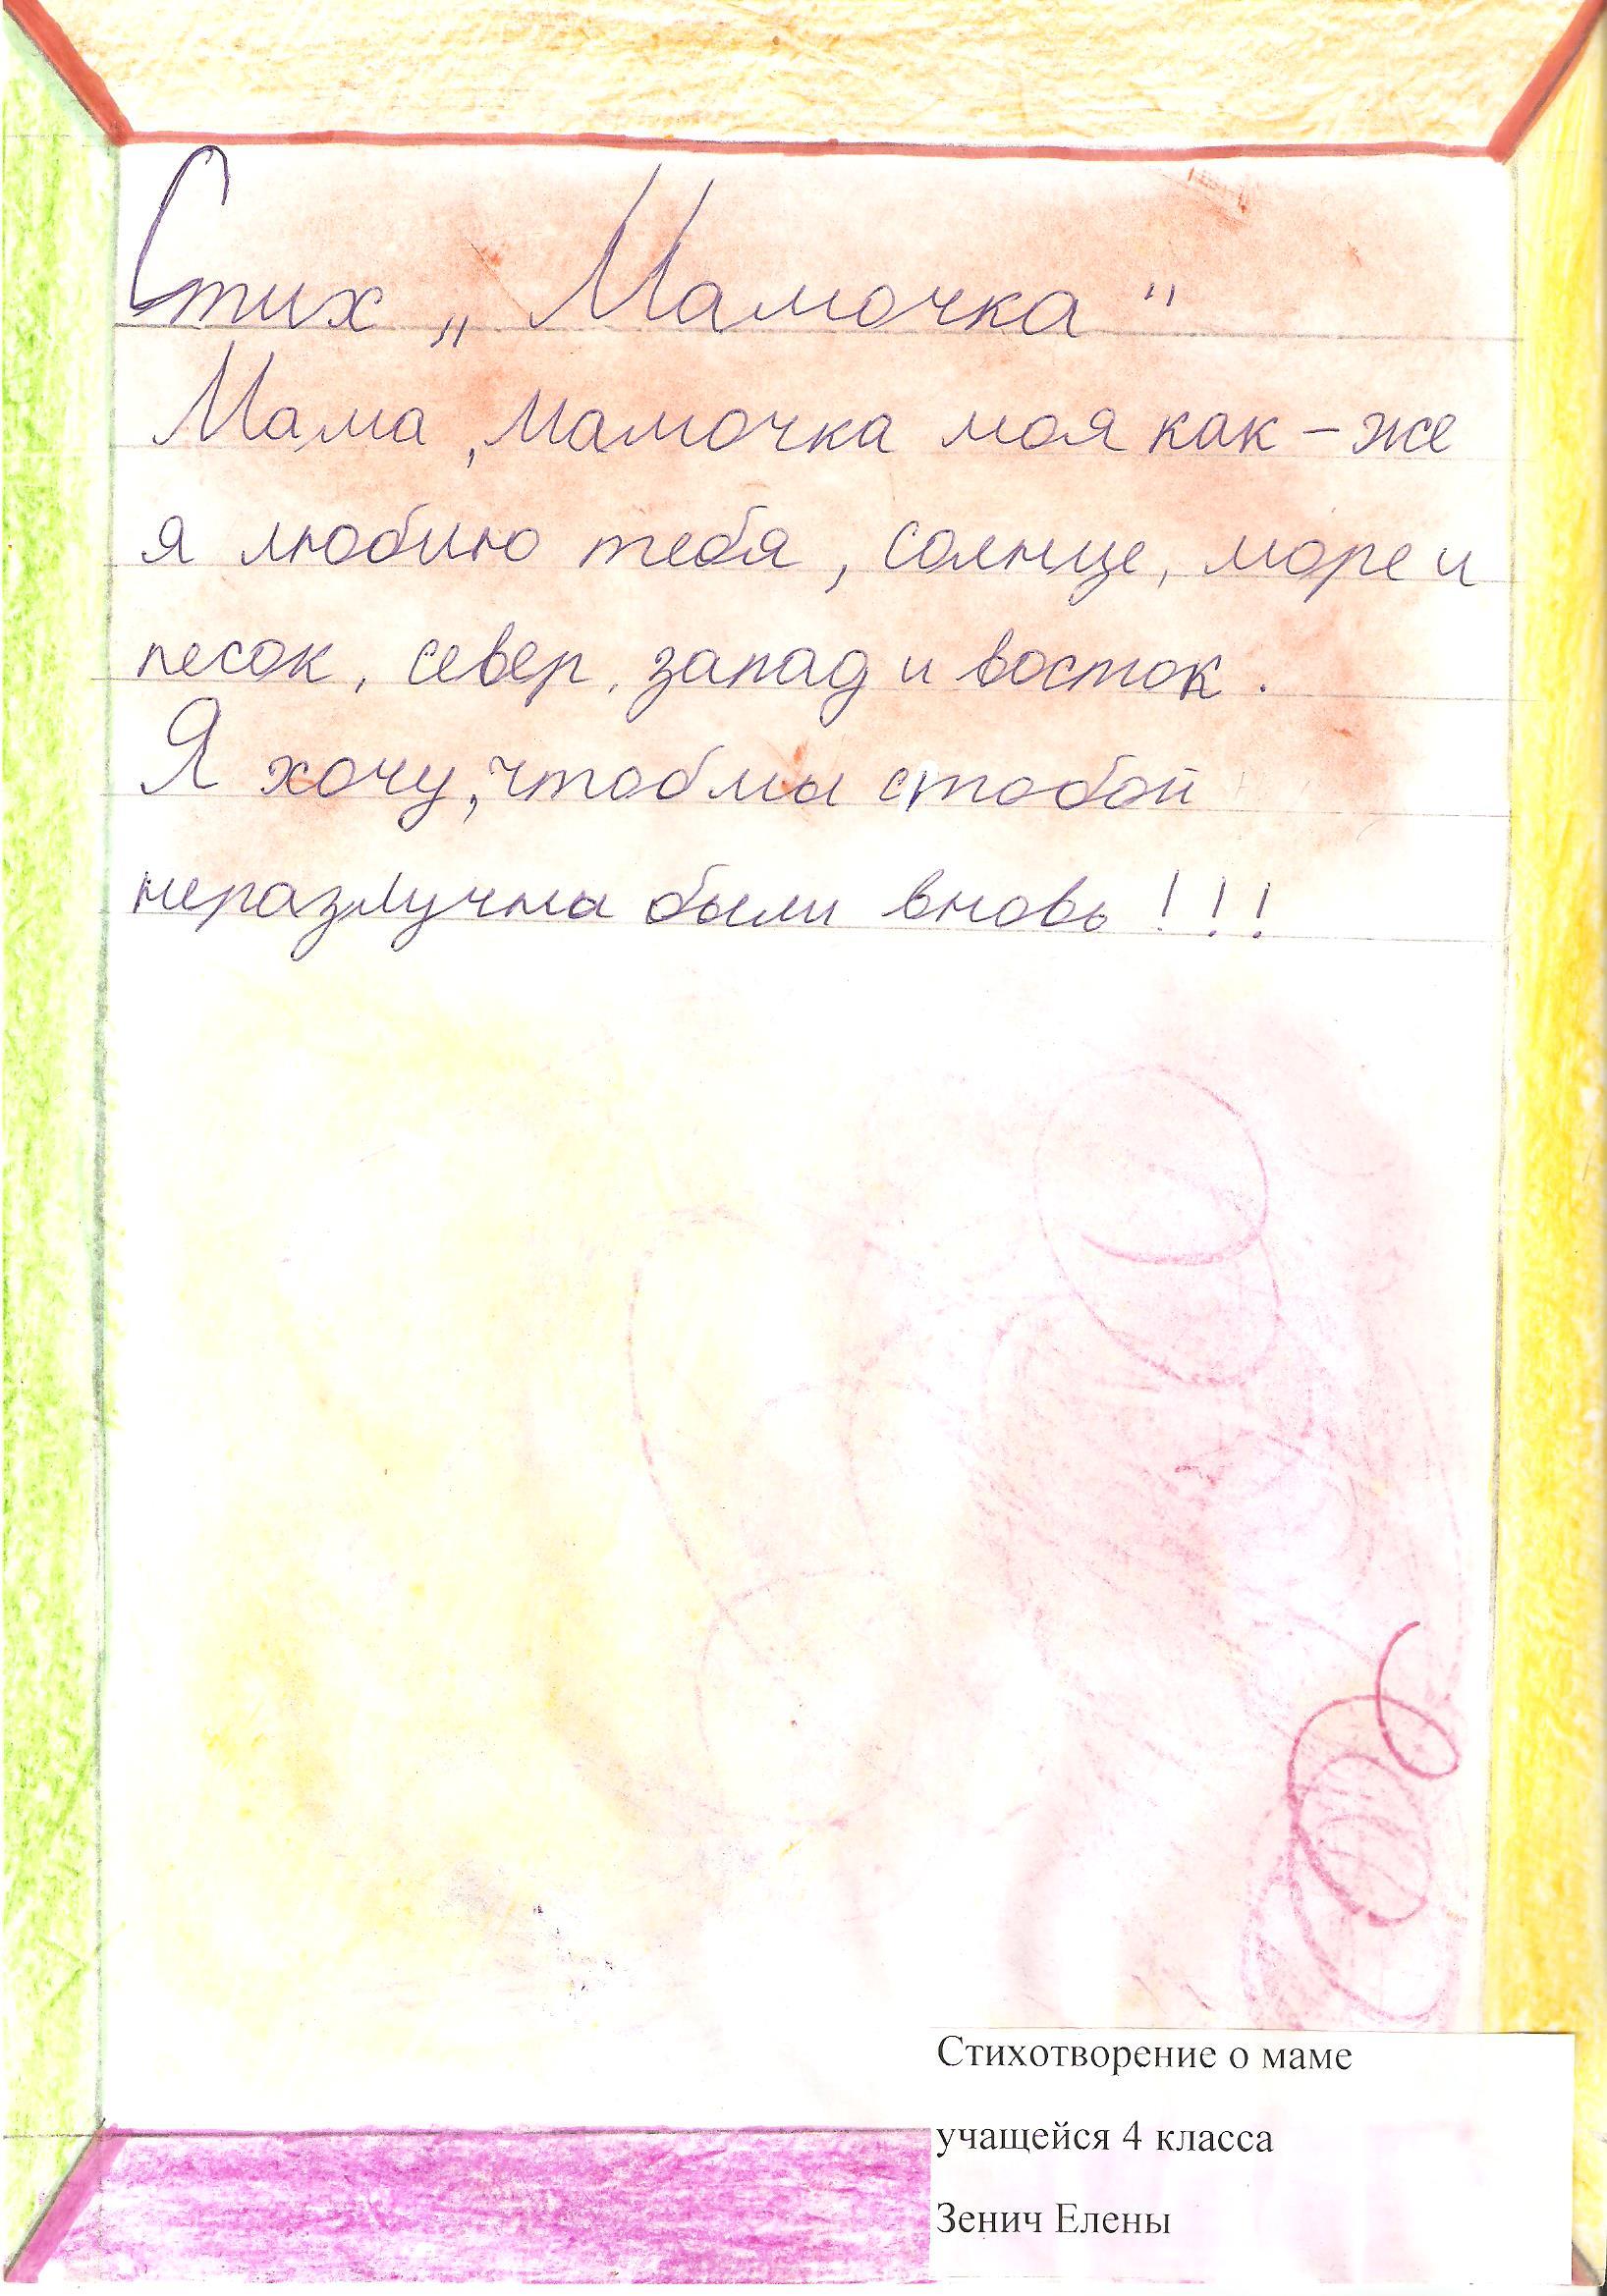 Стих „Мамочка"
Мама, мамочка моя как - же
я люблю тебя, солнце, море и
песок, север, запад и восток.
Я хочу, чтоб мы стобой
неразлучна были вновь!!!
Стихотворение о маме
учащейся 4 класса
Зенич Елены